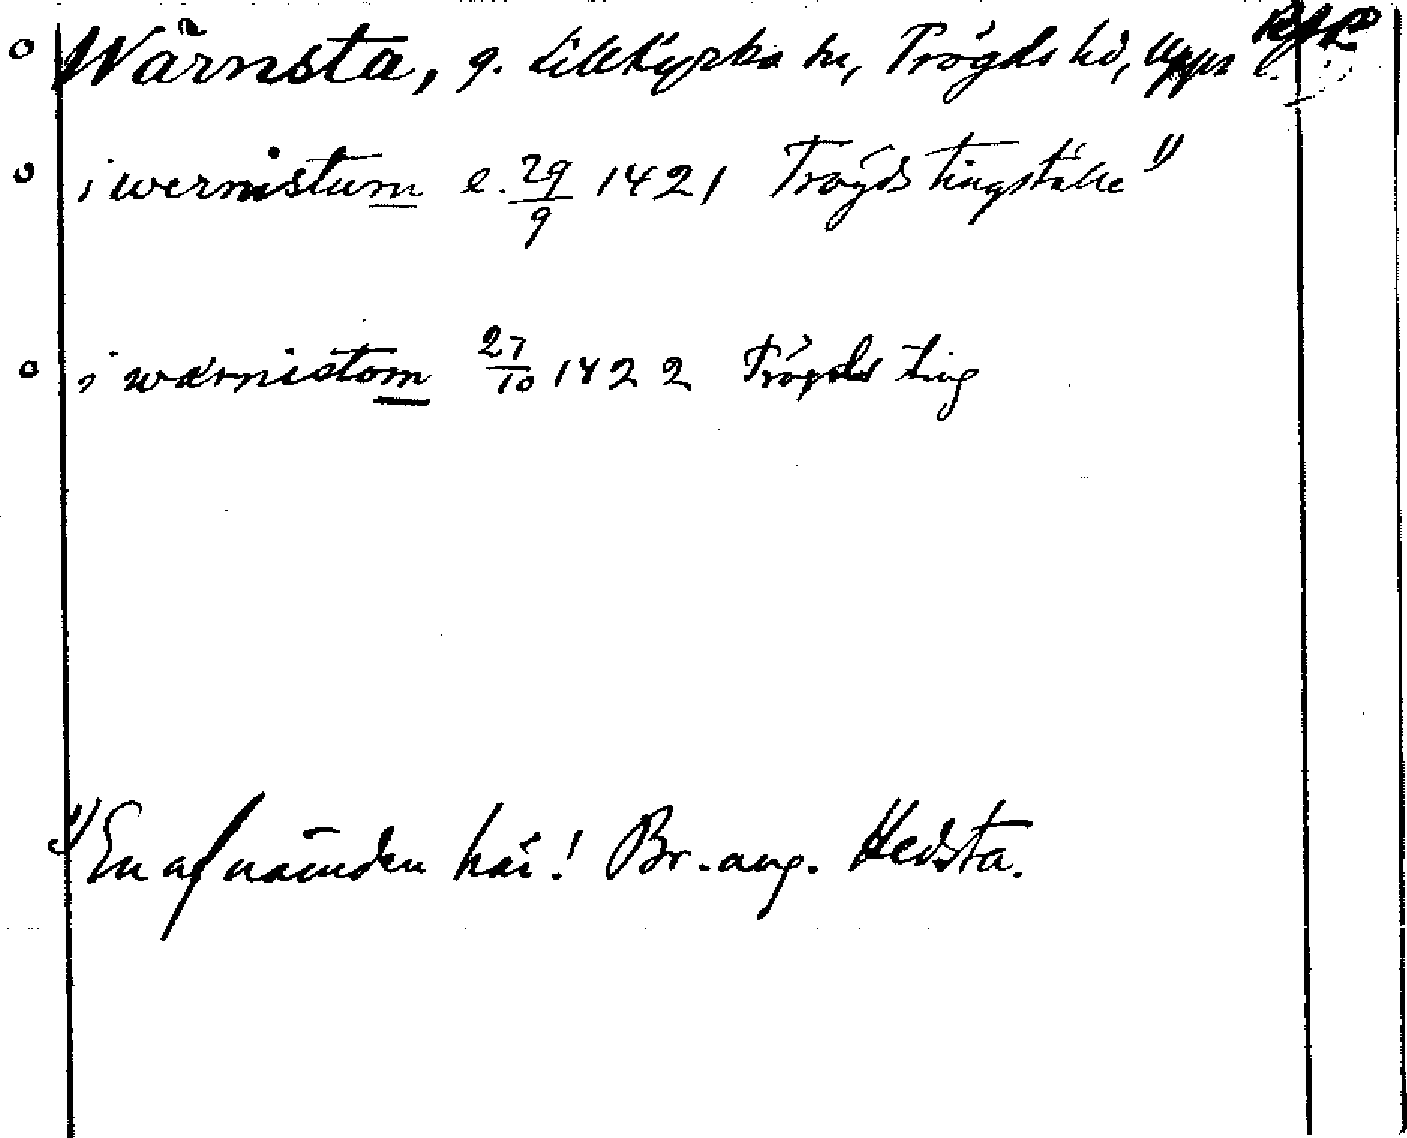 Wärnsta, g. Lillkyrka sn, Trögds hd, Upps l. RAP
i wernistum e. 29/9 1421 Trögds tingställe 1)
i wärnistom 27/10 1422 Trögds ting
1) En af nämden här! Br. ang. Hedsta.